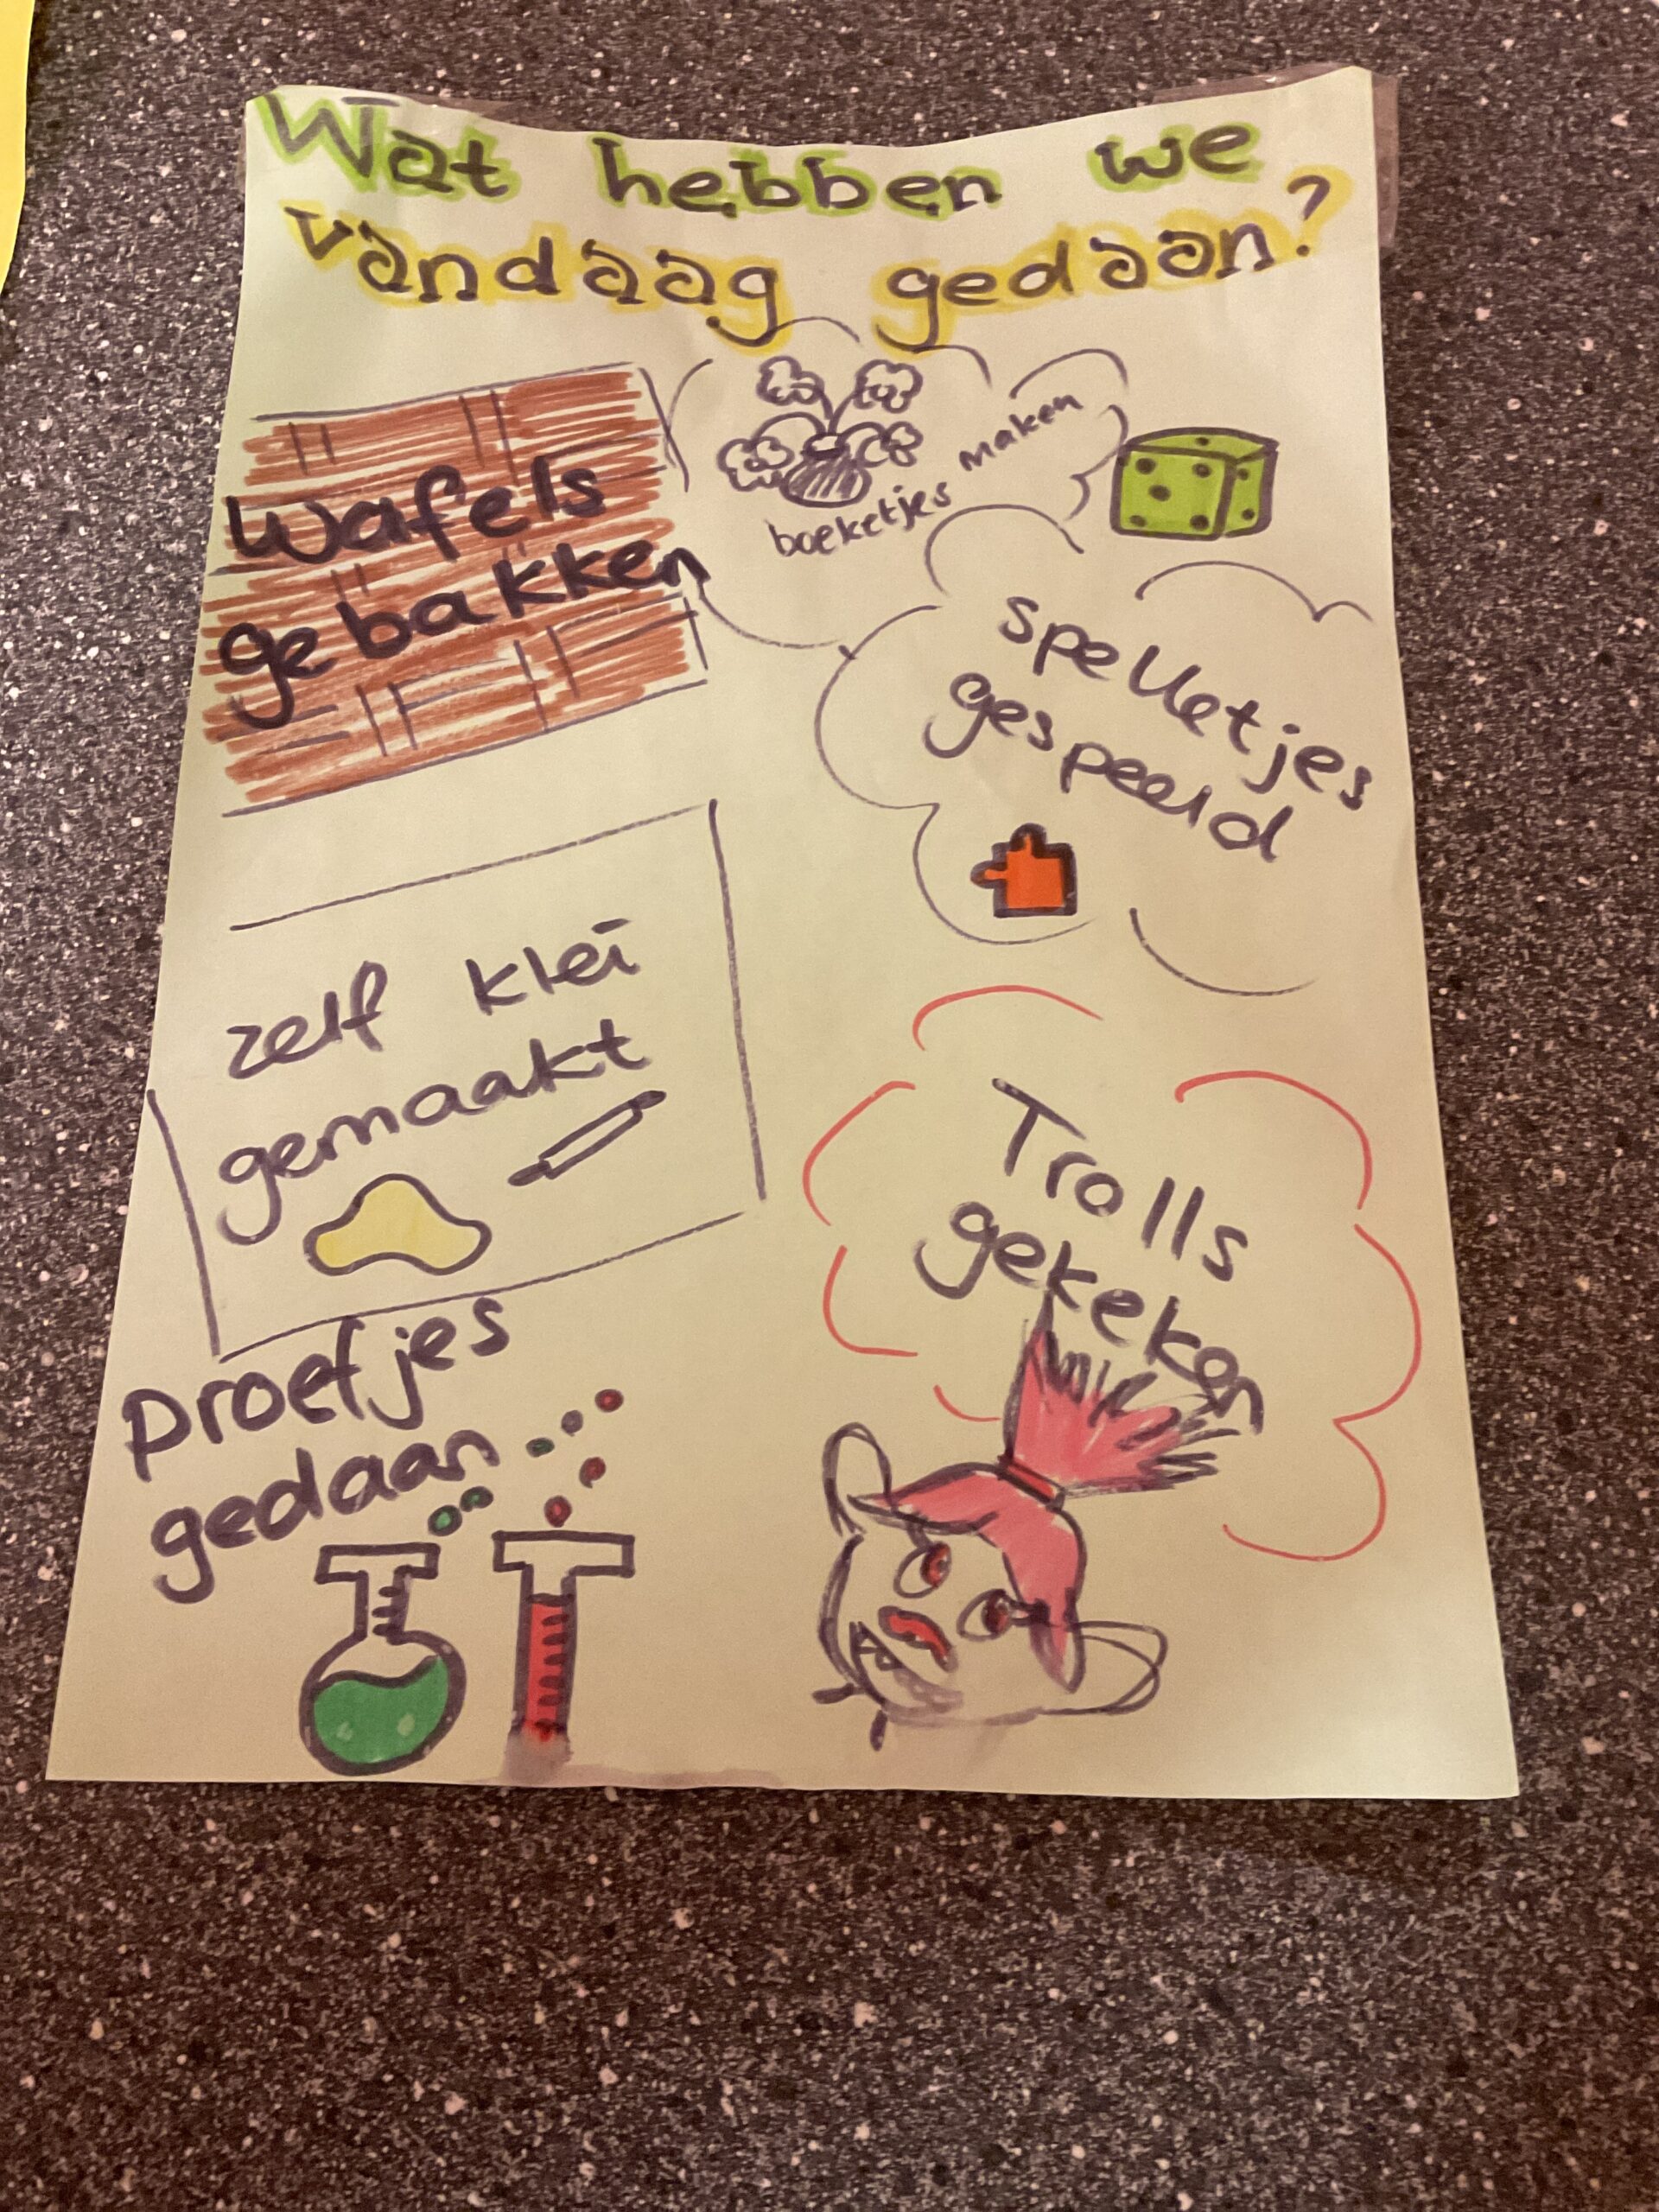 Wat hebben we
vandaag gedaan?
wafels
gebakken
boeketjes maken
spelletjes
gespeeld
zelf klei
gemaakt
Trolls
gekeken
proefjes
gedaan